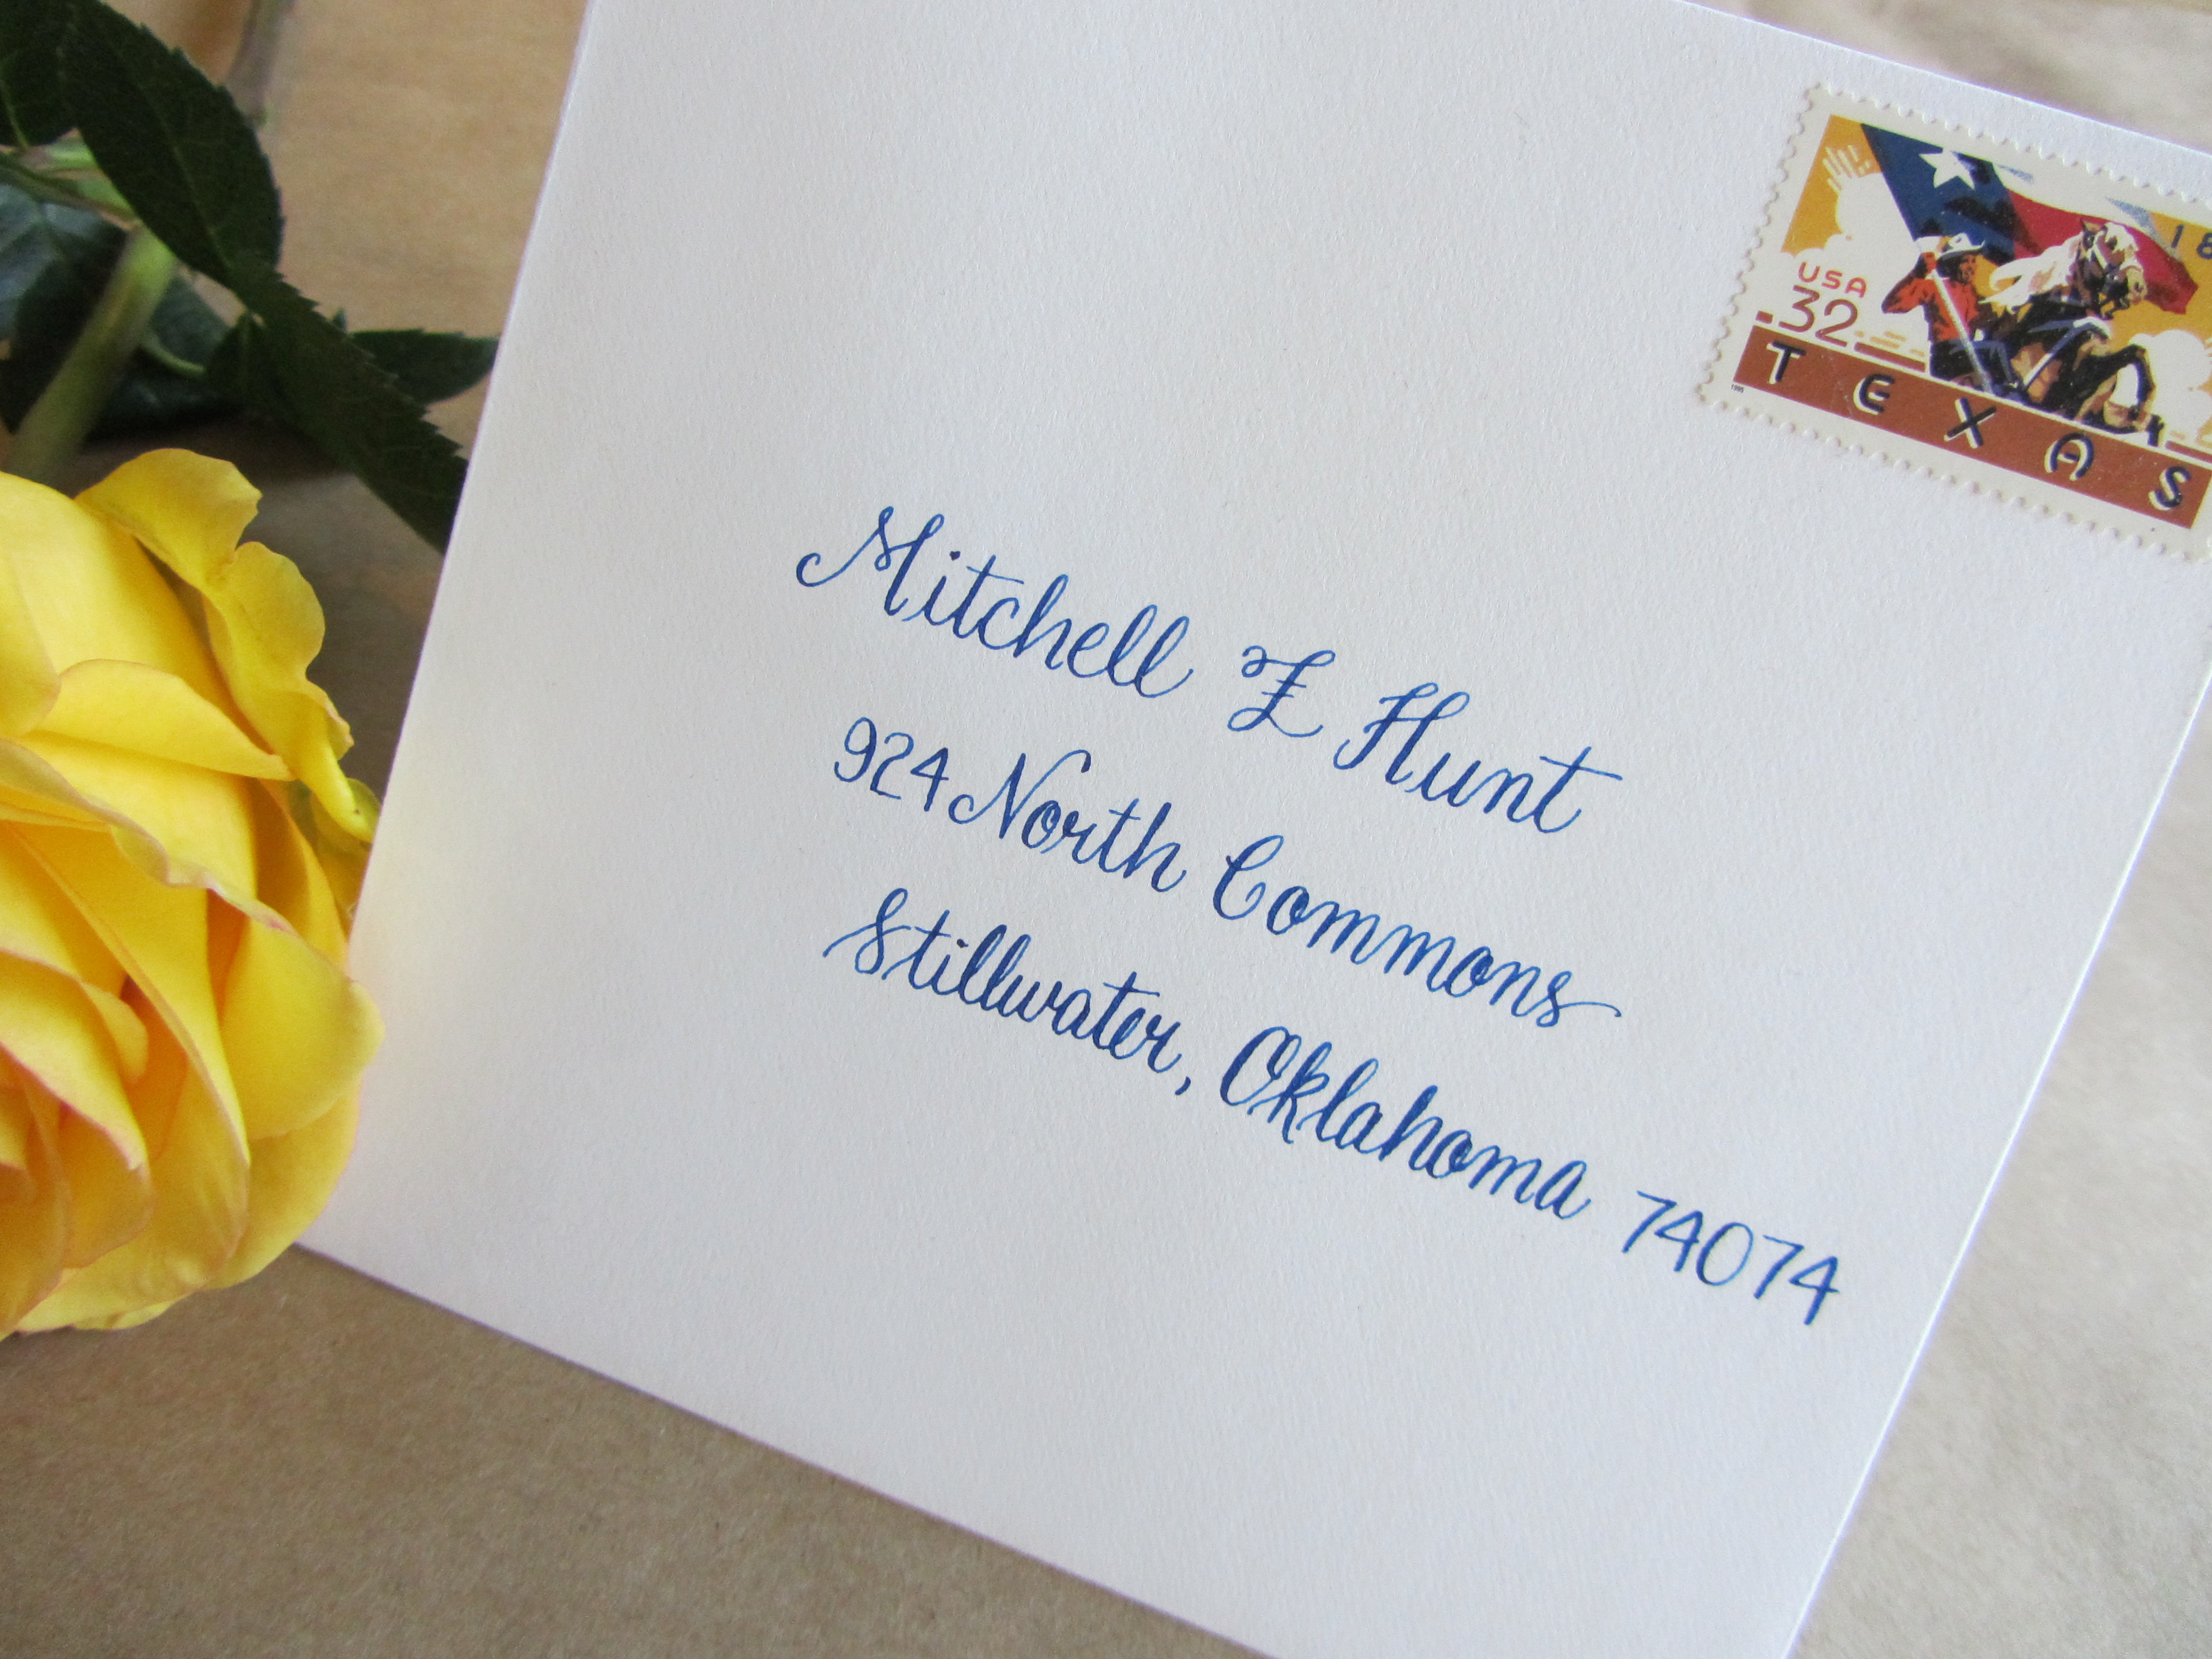 18
USA
.32
TEXAS
Mitchell Z Hunt
924 North Commons
Stillwater, Oklahoma 74074